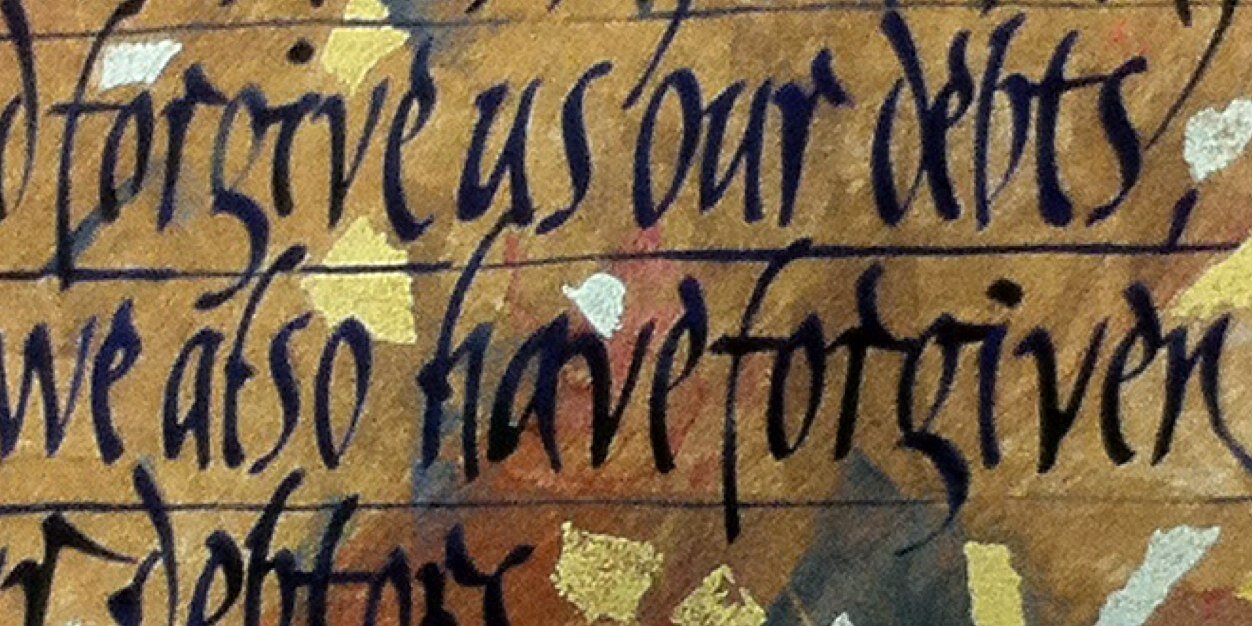 forgive us our debts,
we also have forgiven
debtors